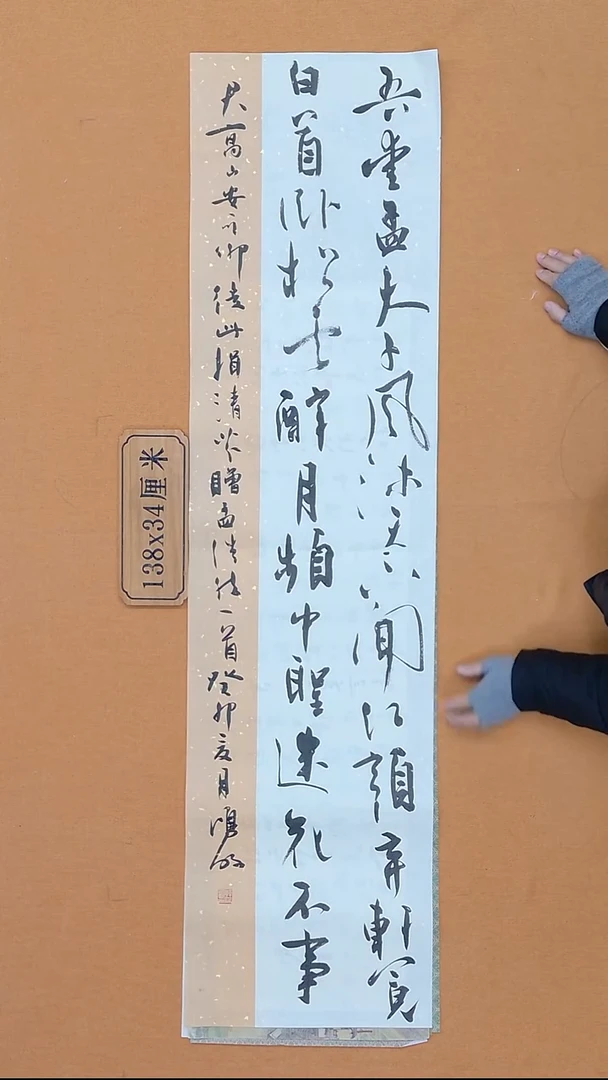 吾愛孟夫子風流天下聞紅顔弃軒冕
白首卧松雲醉月頻中聖迷花不事
君高山安可仰徒此揖清芬贈孟浩然一首癸卯夏月
138x34厘米